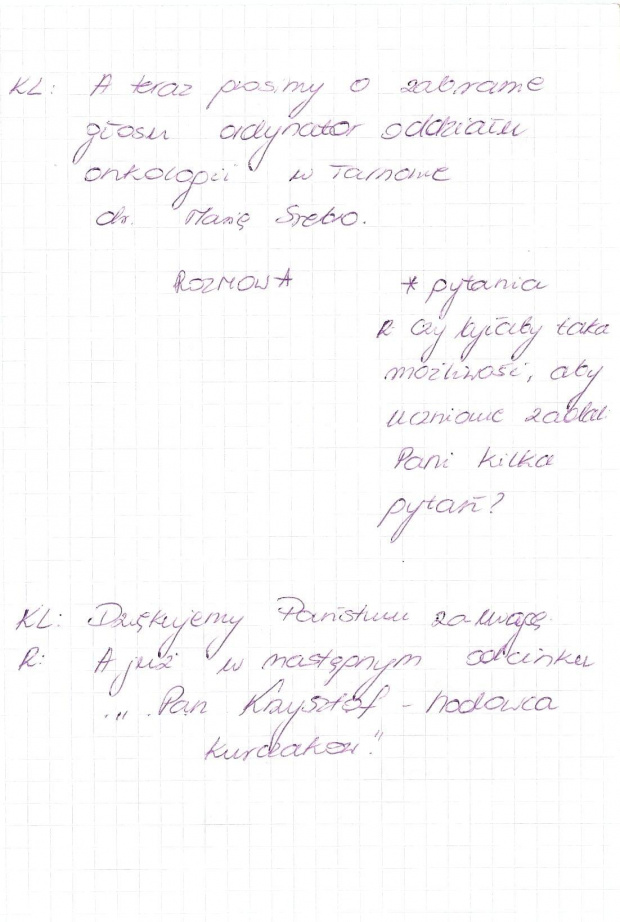 KL: A teraz prosimy o zabranie
głosu ordynator oddziału
onkologii w Tarnowie
dr. Marię Srebro.
ROZMOWA
* pytania
R: Czy byłaby taka
możliwość, aby
uczniowie zadali
Pani kilka
pytań?
KL: Dziękujemy Państwu za uwagę.
R: A już w następnym odcinku
"Pan Krzysztof - hodowca
kurczaków."